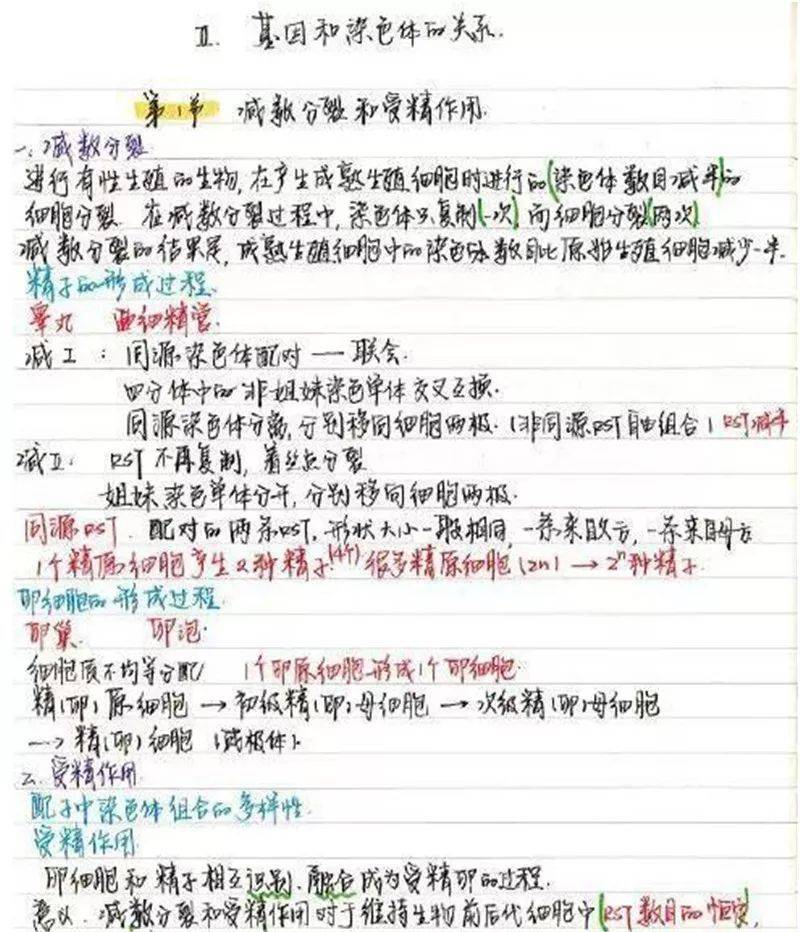 II. 基因和染色体的关系.
第1节 减数分裂和受精作用.
一、减数分裂
进行有性生殖的生物,在产生成熟生殖细胞时进行的(染色体数目减半)的
细胞分裂.在减数分裂过程中,染色体只复制(一次),而细胞分裂(两次)
减数分裂的结果是,成熟生殖细胞中的染色体数目比原始生殖细胞减少一半.
精子的形成过程.
睾丸 曲细精管.
减I: 同源染色体配对 — 联会.
四分体中的非姐妹染色单体交叉互换.
同源染色体分离,分别移向细胞两极.(非同源RST自由组合) RST减半
减II: RST不再复制,着丝点分裂
姐妹染色单体分开,分别移向细胞两极.
同源RST. 配对的两条RST,形状大小一般相同,一条来自父方,一条来自母方
1个精原细胞产生2种精子(4个) 很多精原细胞(2n) → 2ⁿ种精子.
卵细胞的形成过程.
卵巢. 卵泡.
细胞质不均等分配 1个卵原细胞形成1个卵细胞.
精(卵)原细胞 → 初级精(卵)母细胞 → 次级精(卵)母细胞
→ 精(卵)细胞 (或极体).
二.受精作用
配子中染色体组合的多样性.
受精作用
卵细胞和精子相互识别、融合成为受精卵的过程.
意义.减数分裂和受精作用对于维持生物前后代细胞中(RST数目的恒定,